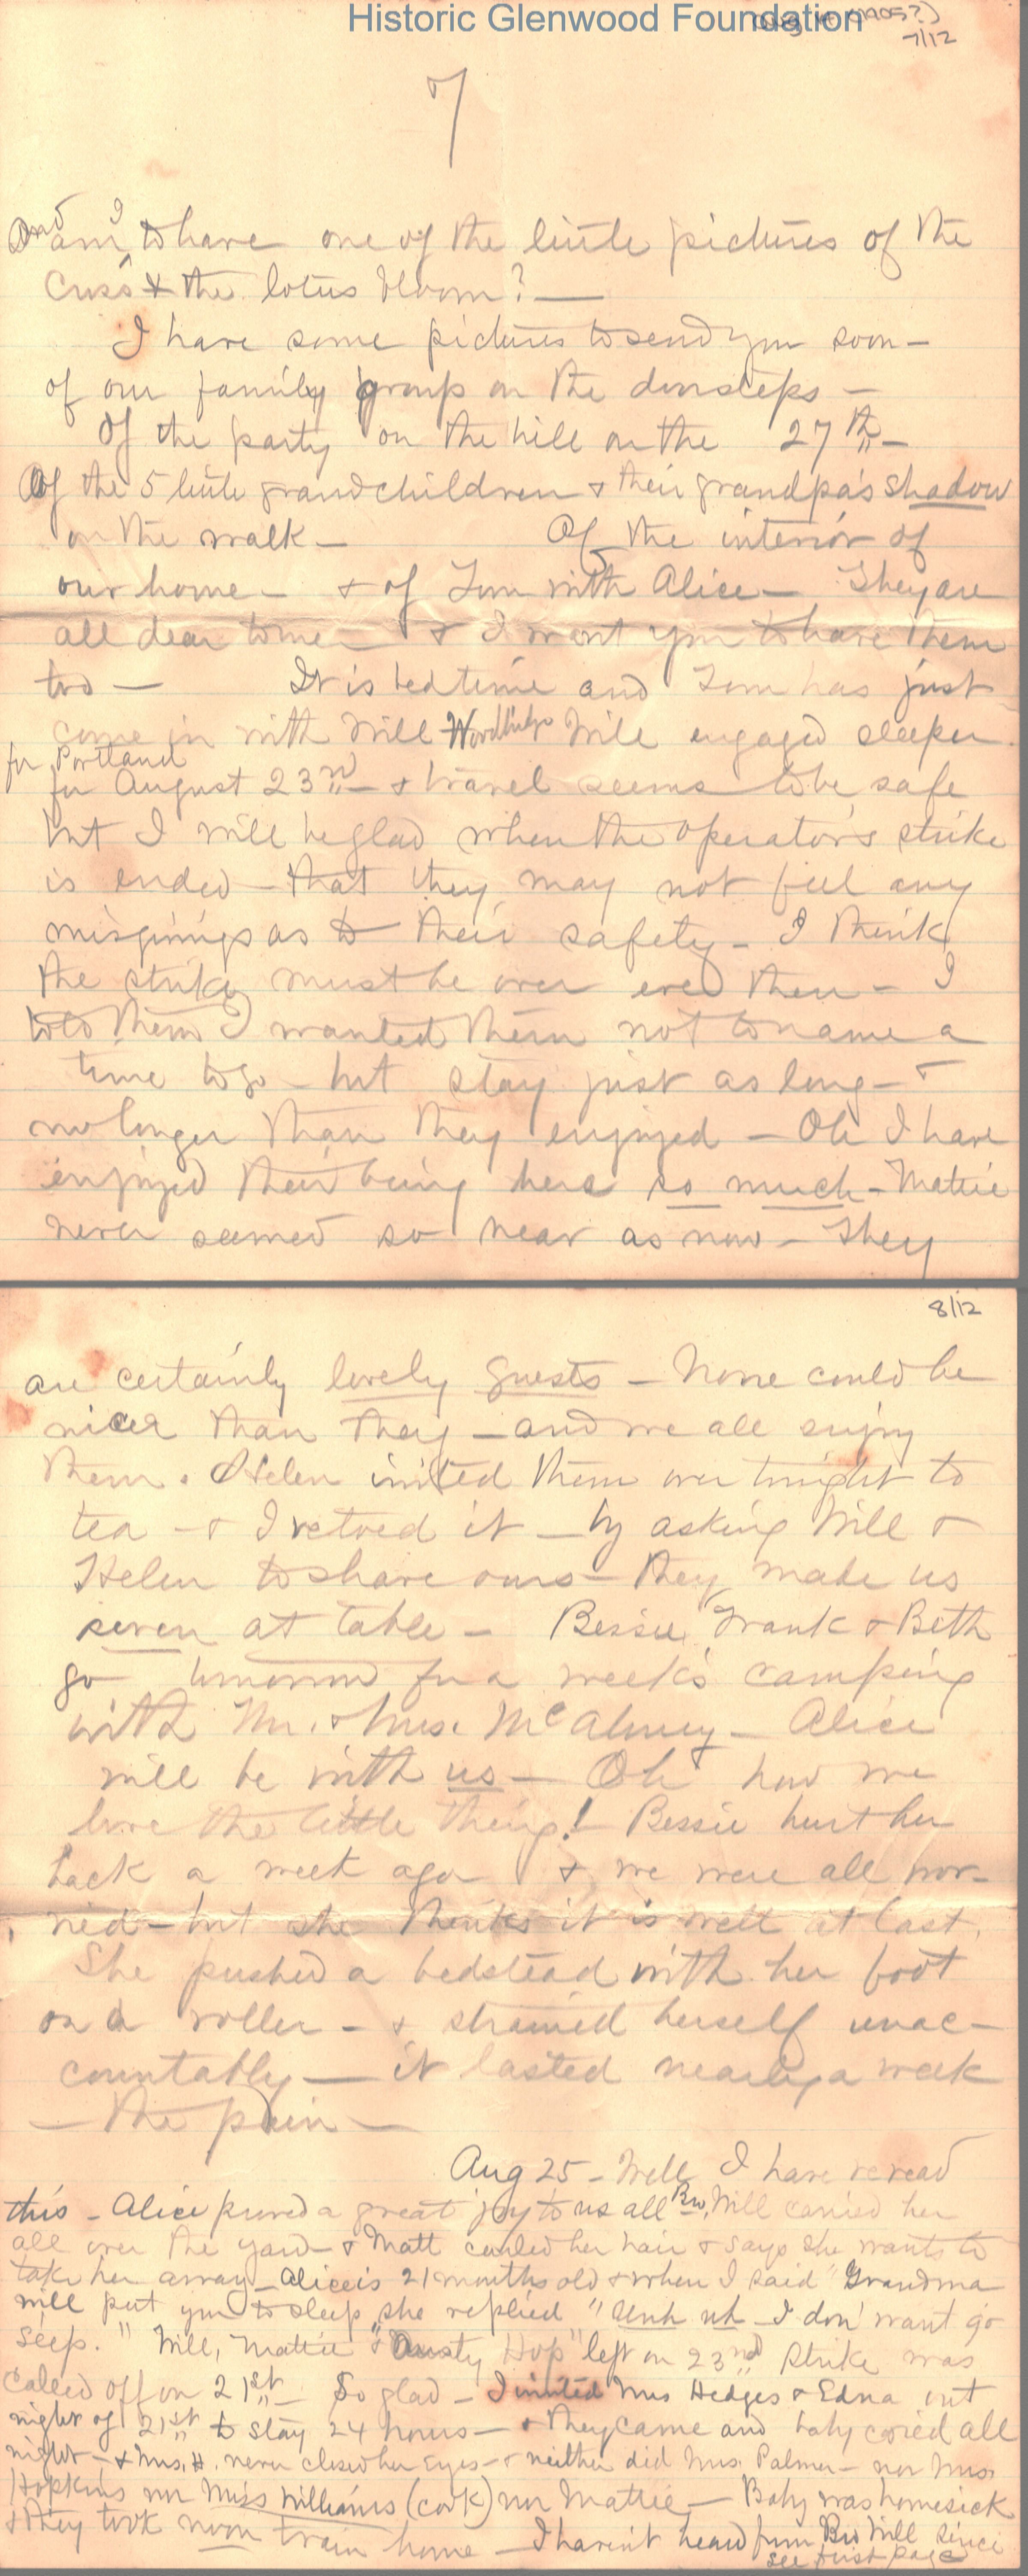 Historic Glenwood Foundation
Aug 14 (1905?)
7/12
7
And am I to have one of the little pictures of the
Cross & the lotus bloom? —
I have some pictures to send you soon —
of our family group on the doorsteps —
Of the party on the hill on the 27th —
Of the 5 little grandchildren & their grandpa's shadow
on the walk — Of the interior of
our home — & of Tom with Alice — They are
all dear to me — & I want you to have them
too — It is bedtime and Tom has just
come in with Will Will engaged sleeper
for Portland
for August 23rd — & travel seems to be safe
but I will be glad when the operator's strike
is ended — that they may not feel any
misgivings as to their safety — I think
the strike must be over ere then — I
told them I wanted them not to name a
time to go — but stay just as long — &
no longer than they enjoyed — Oh I have
enjoyed their being here so much — Mattie
never seemed so near as now — They
8/12
are certainly lovely guests — None could be
nicer than they — and we all enjoy
them. Helen invited them over tonight to
tea — & I vetoed it — by asking Will &
Helen to share ours — they made us
seven at table — Bessie, Frank & Beth
go tomorrow for a week's camping
with Mr. & Mrs. McAlmey — Alice
will be with us — Oh how we
love the little thing! Bessie hurt her
back a week ago & we were all wor-
ried — but she thinks it is well at last.
She pushed a bedstead with her foot
on a roller — & strained herself unac-
countably — it lasted nearly a week
— the pain —
Aug 25 — Well I have reread
this — Alice proved a great joy to us all Bro. Will carried her
all over the yard — & Matt curled her hair & says she wants to
take her away — Alice is 21 months old & when I said "Grandma
will put you to sleep" she replied "Unh uh — I don' want go
seep." Will, Mattie & "Dusty Hop" left on 23rd Strike was
called off on 21st — So glad — I invited Mrs Hedges & Edna out
night of 21st to stay 24 hours — & they came and baby cried all
night — & Mrs. H. never closed her eyes — & neither did Mrs. Palmer — nor Mrs.
Hopkins nor Miss Williams (cook) nor Mattie — Baby was homesick
& they took noon train home — I haven't heard from Bro Will since
see first page